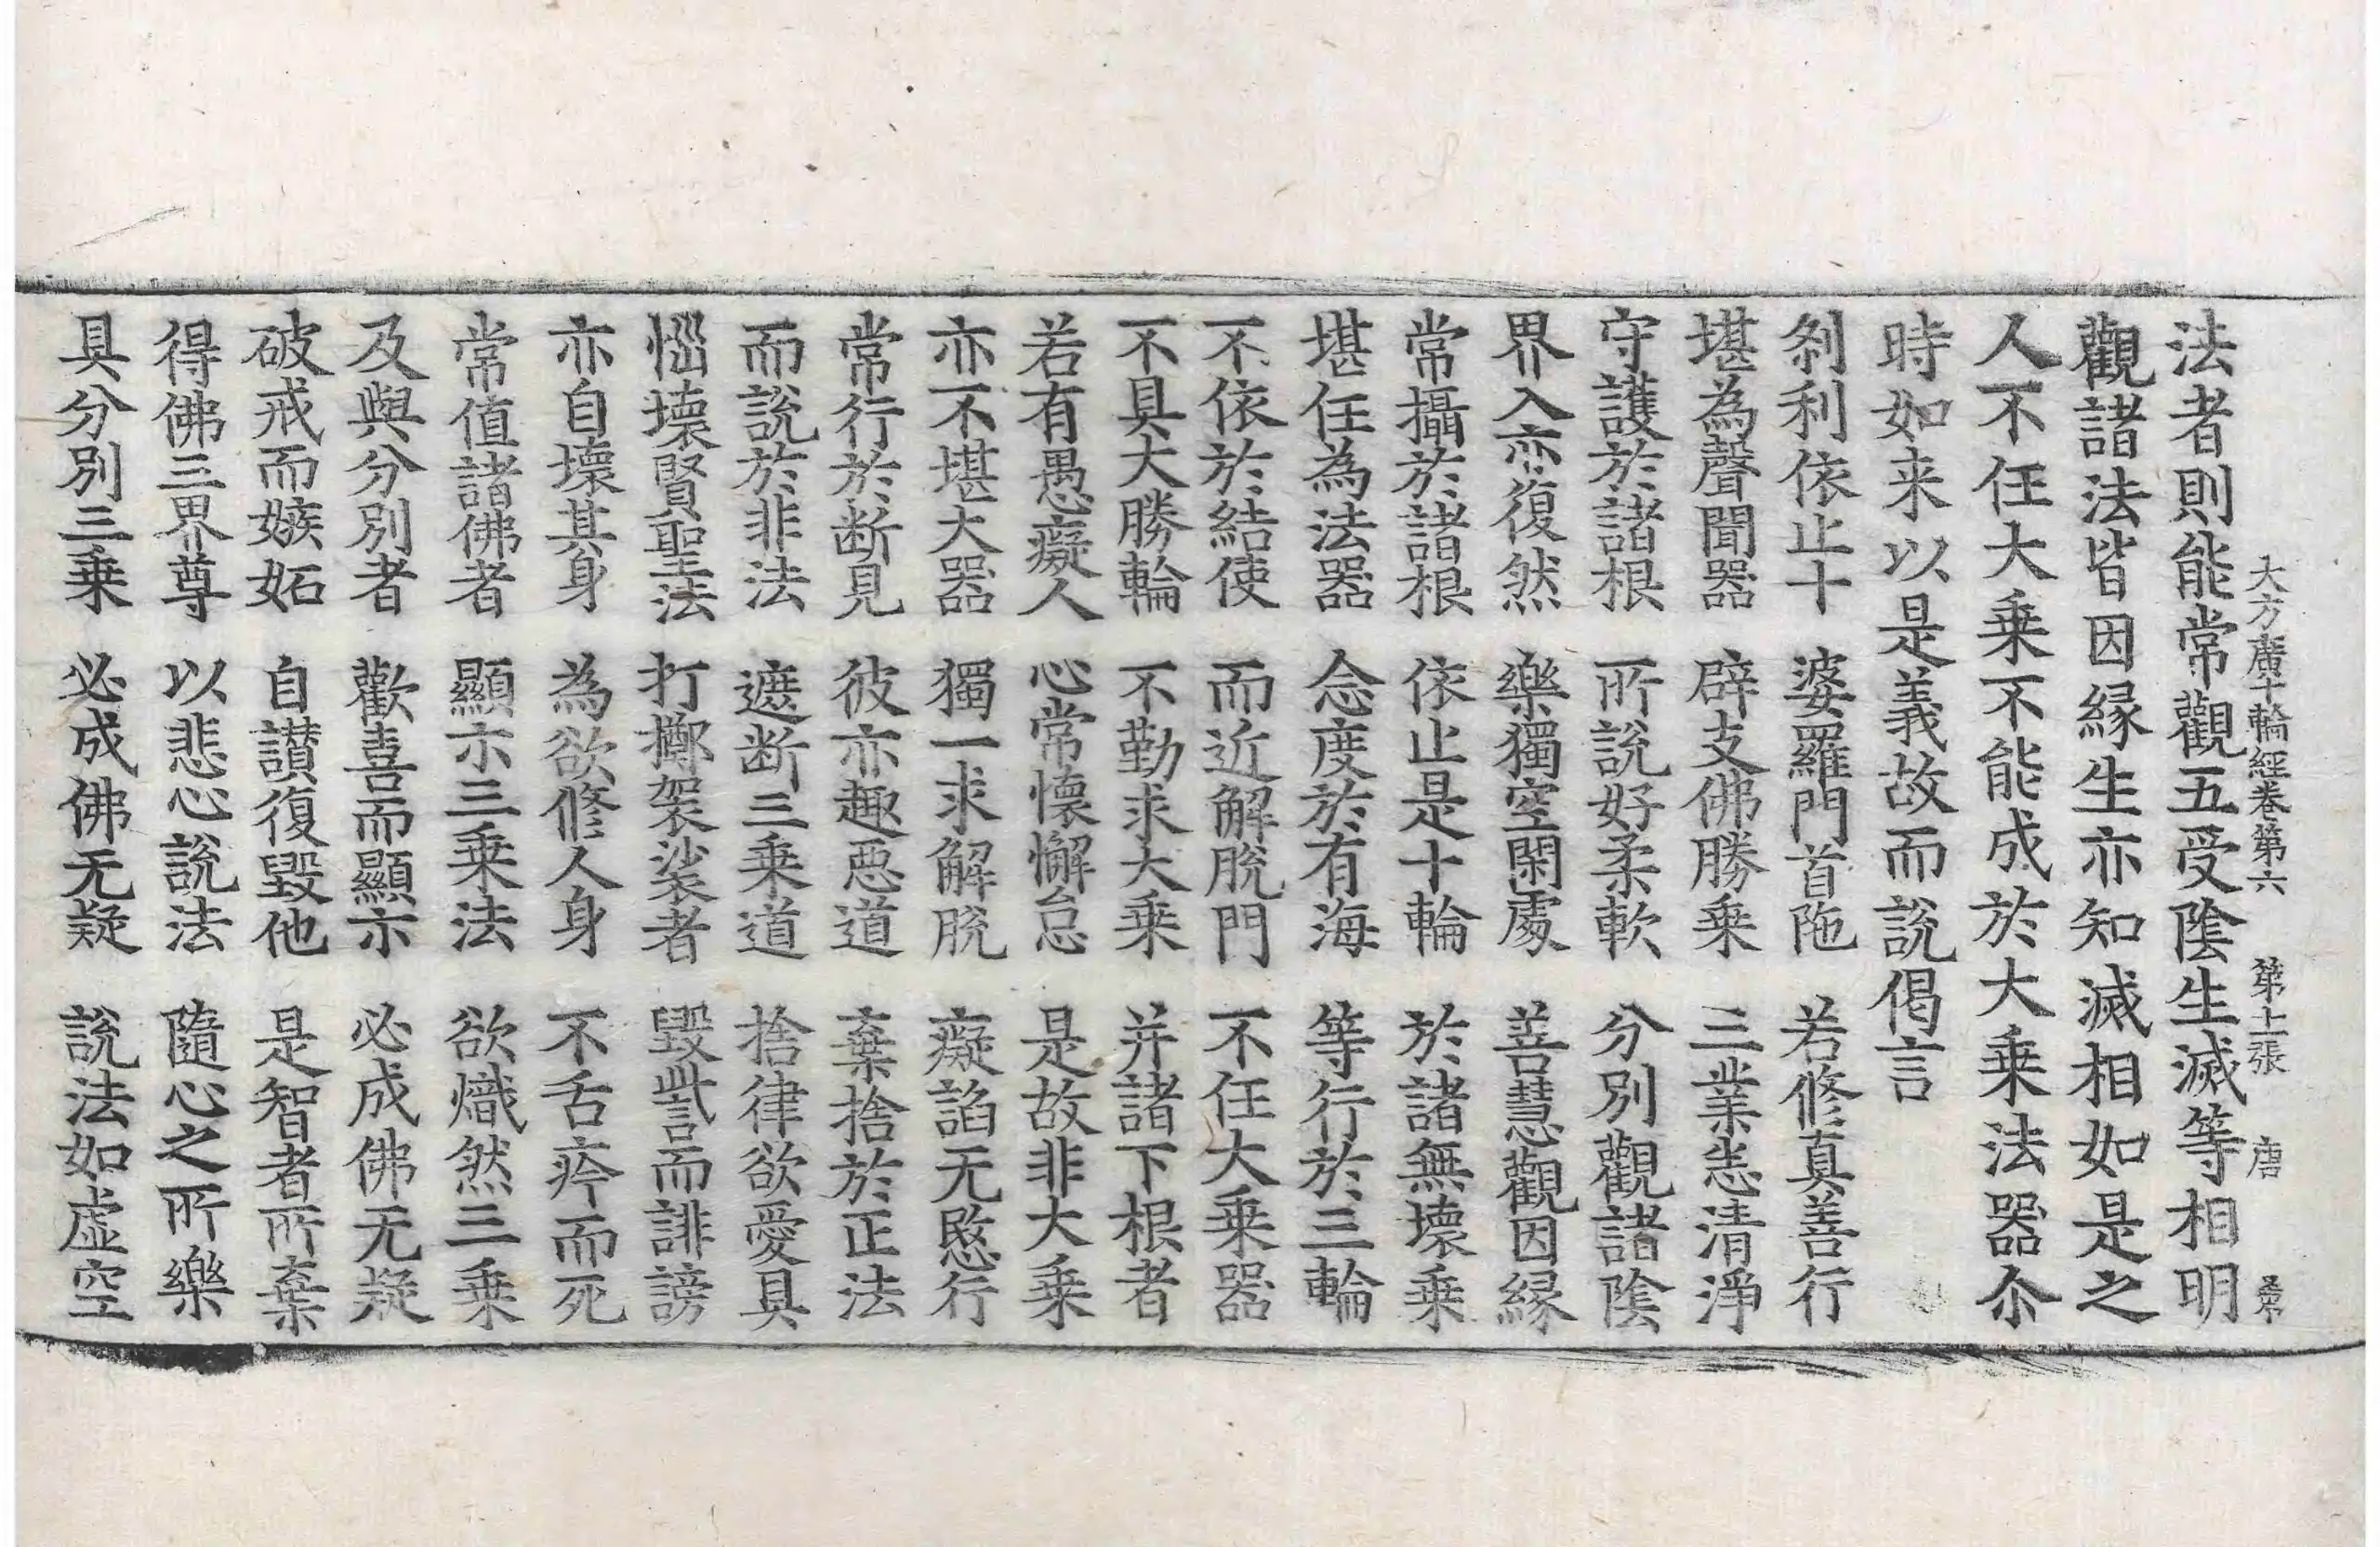 大方廣十輪經卷第六　第上張　唐
法者則能常觀五受陰生滅等相明
觀諸法皆因縁生亦知滅相如是之
人不任大乗不能成於大乗法器尒
時如来以是義故而說偈言
刹利依止十　婆羅門首陁　若修真善行
堪為聲聞器　辟支佛勝乗　三業悉清淨
守護於諸根　所說好柔軟　分別觀諸陰
界入亦復然　樂獨空閑處　善慧觀因縁
常攝於諸根　依止是十輪　於諸無壞乗
堪任為法器　念度於有海　等行於三輪
不依於結使　而近解脫門　不任大乗器
不具大勝輪　不勤求大乗　并諸下根者
若有愚癡人　心常懷懈怠　是故非大乗
亦不堪大器　獨一求解脫　癡諂无愍行
常行於断見　彼亦趣惡道　棄捨於正法
而說於非法　遮断三乗道　捨律欲愛具
惱壞賢聖法　打擲袈裟者　毀呰言而誹謗
亦自壞其身　為欲修人身　不舌疼而死
常值諸佛者　顯示三乗法　欲熾然三乗
及與分別者　歡喜而顯示　必成佛无疑
破戒而嫉妬　自讃復毀他　是智者所棄
得佛三界尊　以悲心說法　隨心之所樂
具分別三乗　必成佛无疑　說法如虛空